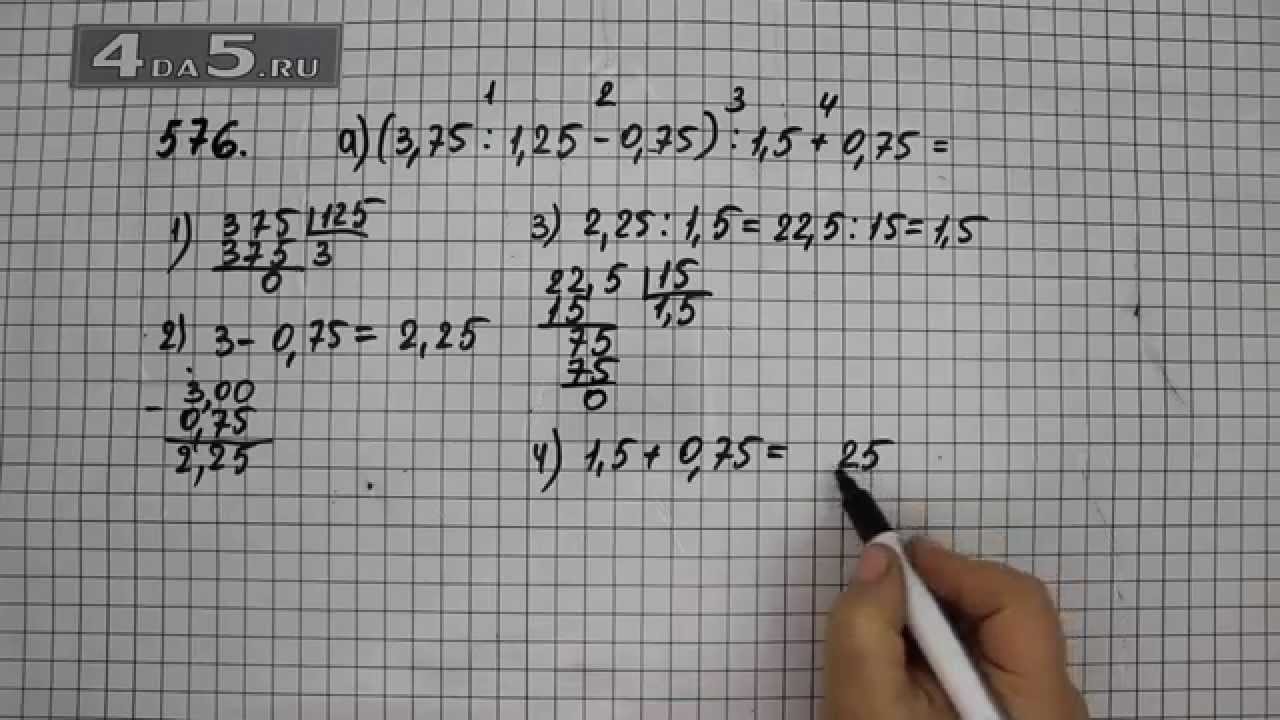 4DA5.RU
1 2 3 4
576. а) (3,75 : 1,25 - 0,75) : 1,5 + 0,75 =
1) 375 125
375 3
0
2) 3 - 0,75 = 2,25
3,00
- 0,75
2,25
3) 2,25 : 1,5 = 22,5 : 15 = 1,5
22,5 15
15 1,5
75
75
0
4) 1,5 + 0,75 = 25